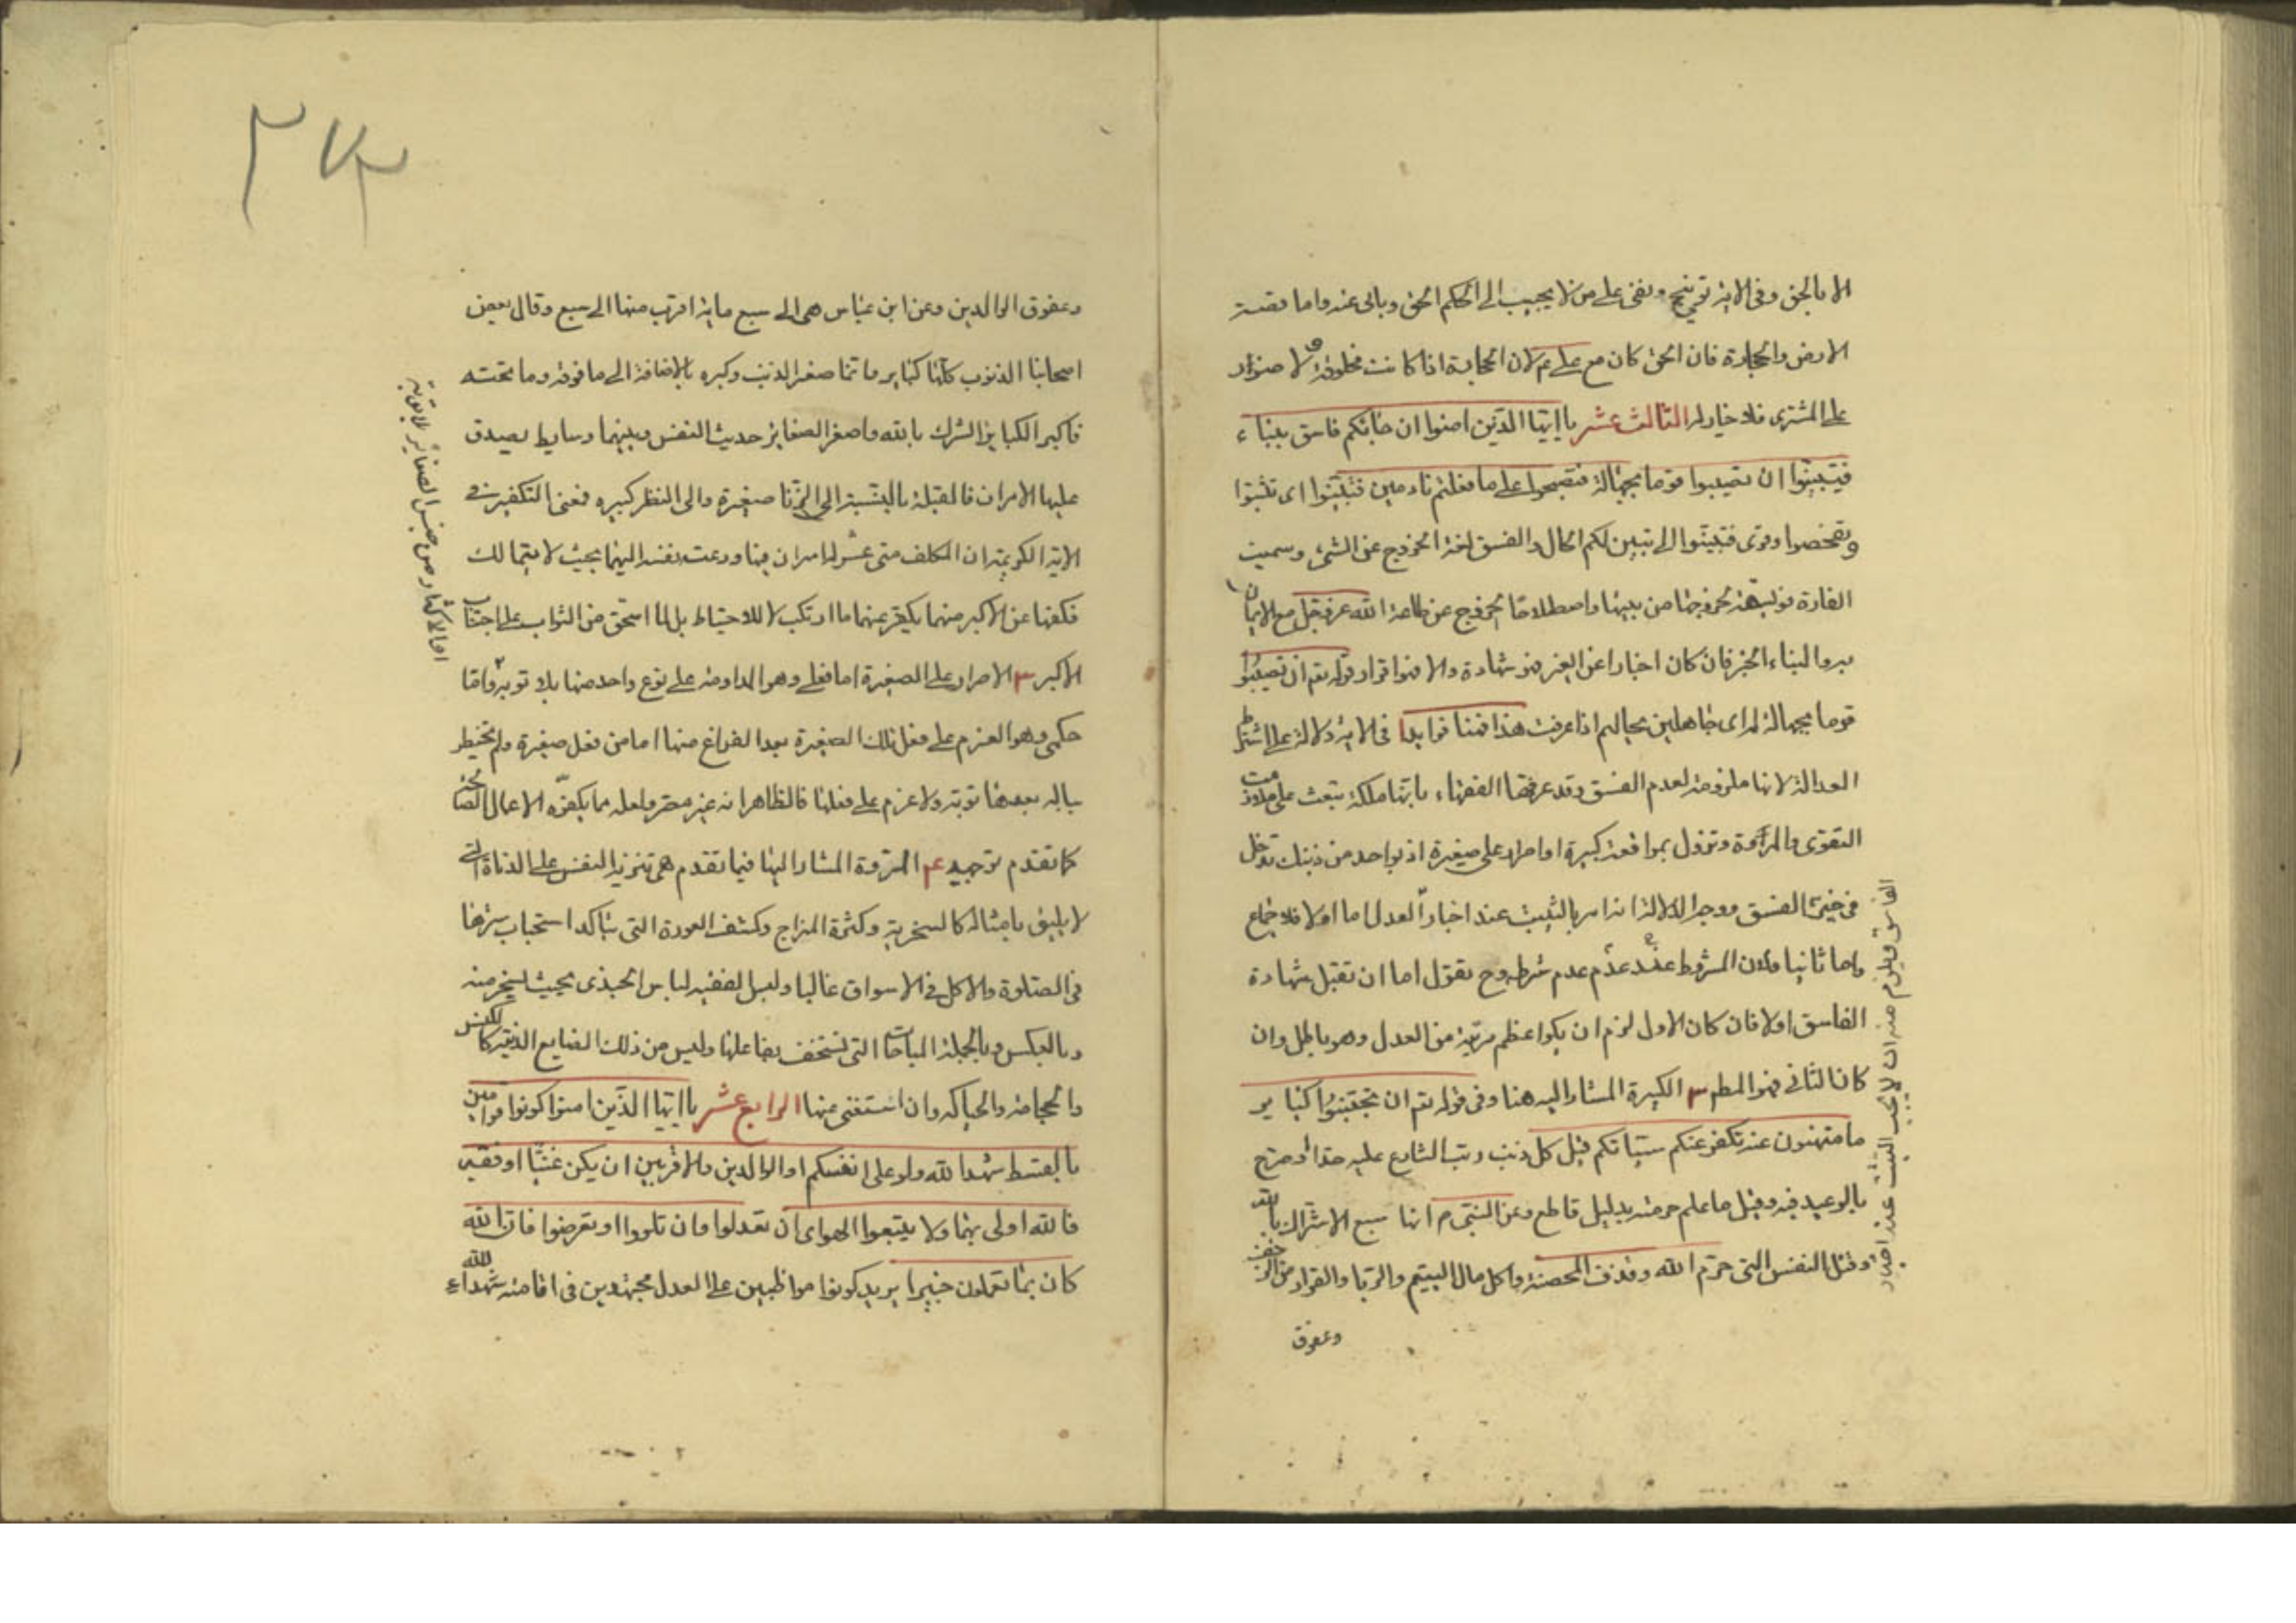 الا بالحق وفى الاية توبيخ ونفى على من لا يجيب الى الحكم الحق ويابى عنه واما قصة
الارض والحجارة فان الحق كان مع على عم لان الحجارة اذا كانت مخلوقة و لا ضرار
على المشترى فلا خيار له الثالث عشر يا ايها الذين امنوا ان جائكم فاسق بنباء
فتبينوا ان تصيبوا قوما بجهالة فتصبحوا على ما فعلتم نادمين فتبينوا اى تثبتوا
وتفحصوا وقرى فتثبتوا الى تبين لكم الحال والفسق لغة الخروج عن الشئ وسميت
الفارة فويسقة لخروجها من بيتها واصطلاحا الخروج عن طاعة الله عز وجل مع الايمان
به والنباء الخبر فان كان اخبارا عن الغير فهو شهادة والا فهو اقرار وقوله تع ان تصيبوا
قوما بجهالة اى جاهلين بحالهم اذا عرفت هذا فهنا فوايد ا فى الاية دلالة على اشتراط
العدالة لانها ملزومة لعدم الفسق وقد عرفها الفقهاء بانها ملكة تبعث على ملازمت
التقوى والمروة وتزول بمواقعة كبيرة او اصرار على صغيرة اذ بواحد من ذينك تدخل
فى حيز الفسق ووجه الدلالة انه امر بالتثبت عند اخبار العدل اما اولا فلاجماع
واما ثانيا فلان المشروط عند عدم عدم شرطه وح نقول اما ان تقبل شهادة
الفاسق اولا فان كان الاول لزم ان يكوا عظم مرتبة من العدل وهو باطل وان
كان الثانى فهو المطم ٣ الكبيرة المشار اليه هنا وفى قوله تع ان تجتنبوا كبائر
ما تنهون عنه نكفر عنكم سيئاتكم قيل كل ذنب رتب الشارع عليه حدا او صرح
بالوعيد فيه وقيل ما علم حرمته بدليل قاطع وعن النبى م انها سبع الاشراك بالله
وقتل النفس التى حرم الله وقذف المحصنة واكل مال اليتيم والربا والفرار من الزحف
وعقوق
الفاسق ويلزم منه ان لا يجب التثبت عند اخبار
٢٧٣
وعقوق الوالدين وعن ابن عباس هى الى سبع ماية اقرب منها الى سبع وقال بعض
اصحابنا الذنوب كلها كبائر وانما صغر الذنب وكبره بالاضافة الى ما فوقه وما تحته
فاكبر الكبائر الشرك بالله واصغر الصغائر حديث النفس وبينهما وسايط يصدق
عليها الامران فالقبلة بالنسبة الى الزنا صغيرة والى النظر كبيره فمعنى التكفير فى
الاية الكريمة ان المكلف متى عن له امران منها ودعت نفسه اليهما بحيث لا يتمالك
فكفها عن الاكبر منهما يكفر عنهما ما ارتكب لا للاحتياط بل لما استحق من الثواب على اجتناب
الاكبر ٣ الاصرار على الصغيرة اما فعلى وهو المداومة على نوع واحد منها بلا توبة واما
حكمى وهو العزم على فعل تلك الصغيرة بعد الفراغ منها اما من فعل صغيرة ولم يخطر
بباله بعدها توبة ولا عزم على فعلها فالظاهر انه غير مصر ولعله مما يكفره الاعمال الصالحة
كما تقدم توجيه ٤ المروة المشار اليها فيما تقدم هى تنزيه النفس على الدناة التى
لا يليق بامثاله كالسخرية وكثرة المزاج وكشف العورة التى يتاكد استحباب سترها
فى الصلوة والاكل فى الاسواق غالبا ولبس الفقيه لباس الجندى بحيث يسخر منه
وبالعكس وبالجملة المباحات التى تستخف بفاعلها وليس من ذلك الصنايع الدنية كالكنس
والحجامة والحياكه وان استغنى عنها الرابع عشر يا ايها الذين امنوا كونوا قوامين
بالقسط شهدا لله ولو على انفسكم او الوالدين والاقربين ان يكن غنيا او فقير
فالله اولى بهما ولا يتبعوا الهواى ان تعدلوا وان تلووا او تعرضوا فان الله
كان بما تعملون خبيرا يريد كونوا مواظبين على العدل مجتهدين فى اقامته شهداء لله
او الاكثار من جنس الصغائر بلا توبة